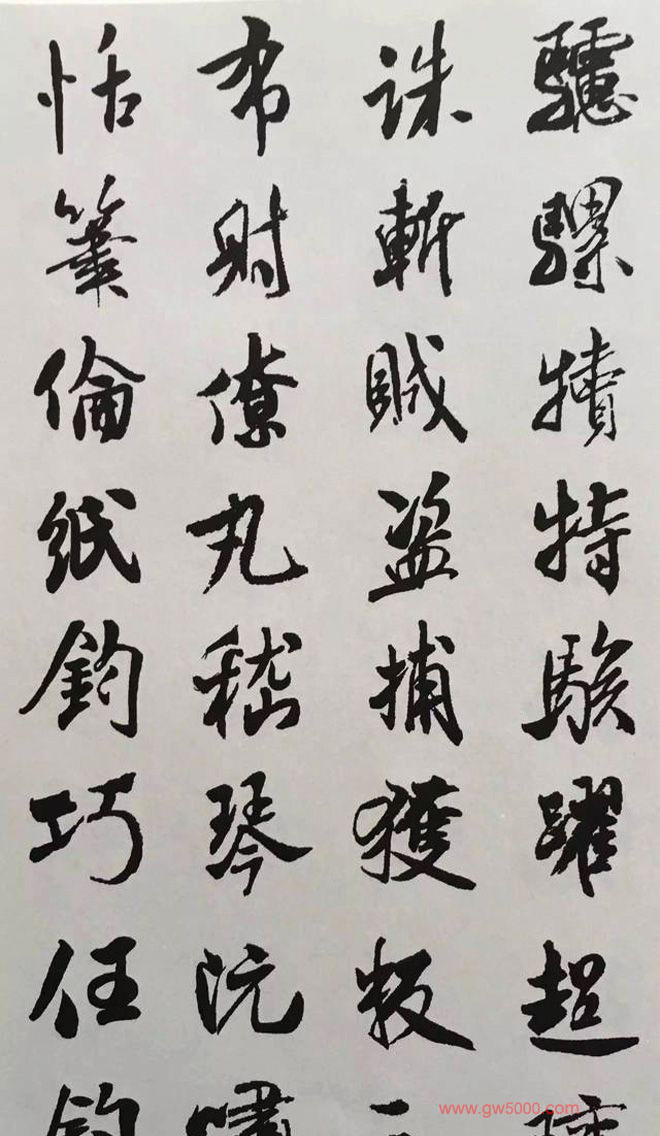 驢騾犢特駭躍超
誅斬賊盗捕獲叛
布射僚丸嵇琴阮
恬筆倫紙鈞巧任
www.gw5000.com